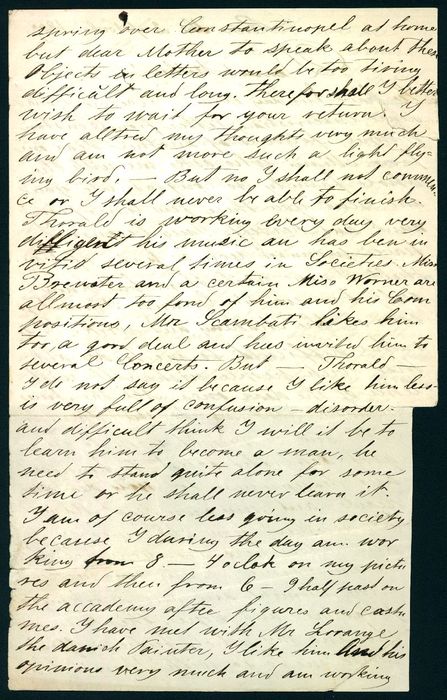 spring over Constantinopel at home
but dear Mother to speak about these
Objects in letters would be too tiring
difficult and long. therefor shall I better
wish to wait for your return. I
have alltred my thoughts very much
and am not more such a light fly-
ing bird, — But no I shall not commen-
ce or I shall never be able to finish.
Thorald is working every day very
diffligent his music an has ben in
vitid several times in Societies. Miss
Brewster and a certain Miss Worner are
allmost too fond of him and his Com
positions, Mr Scambati likes him
too a good deal and has invited him to
several Concerts. But — Thorald —
I do not say it because I like him less
is very full of confusion — disorder.
and difficult think I will it be to
learn him to become a man, he
need to stand quite alone for some
time or he shall never learn it.
I am of course less going in society
because I during the day am wor
king from 8 — 4 oclok on my pictu
res and then from 6 — 9 half past on
the accademy after figures and costu
mes. I have met with Mr Lorange
the danich Painter, I like him and his
opinions very much and am working